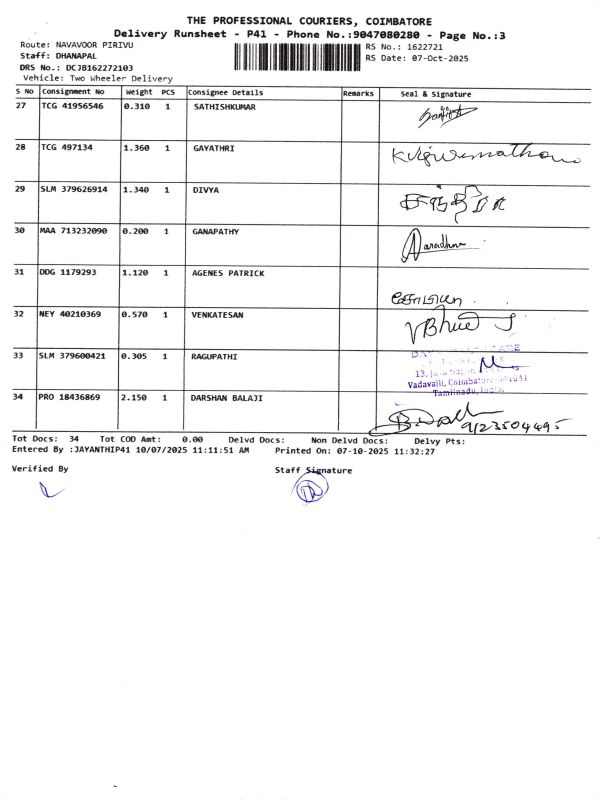 THE PROFESSIONAL COURIERS, COIMBATORE
Delivery Runsheet - P41 - Phone No.:9047080280 - Page No.:3
Route: NAVAVOOR PIRIVU
RS No.: 1622721
Staff: DHANAPAL
RS Date: 07-Oct-2025
DRS No.: DCJB162272103
Vehicle: Two Wheeler Delivery
S No Consignment No Weight PCS Consignee Details Remarks Seal & Signature
27 TCG 41956546 0.310 1 SATHISHKUMAR
28 TCG 497134 1.360 1 GAYATHRI
29 SLM 379626914 1.340 1 DIVYA
30 MAA 713232090 0.200 1 GANAPATHY
31 DDG 1179293 1.120 1 AGENES PATRICK
32 NEY 40210369 0.570 1 VENKATESAN
33 SLM 379600421 0.305 1 RAGUPATHI
Vadavalli, Coimbatore
Tamilnadu, India.
34 PRO 18436869 2.150 1 DARSHAN BALAJI
9123504495
Tot Docs: 34 Tot COD Amt: 0.00 Delvd Docs: Non Delvd Docs: Delvy Pts:
Entered By :JAYANTHIP41 10/07/2025 11:11:51 AM Printed On: 07-10-2025 11:32:27
Verified By Staff Signature